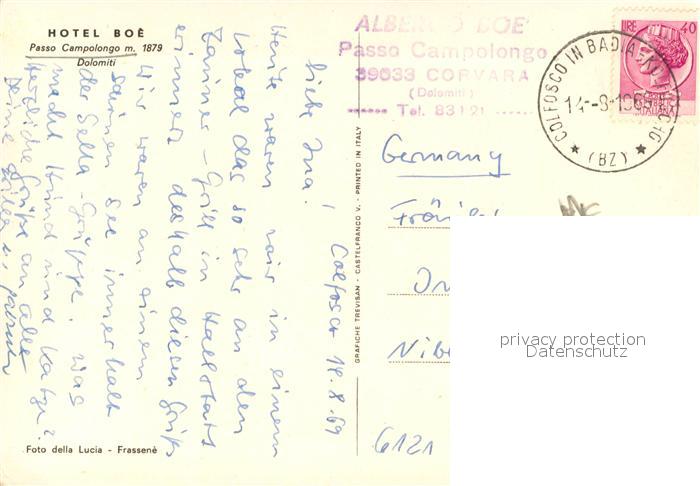 HOTEL BOÈ
Passo Campolongo m. 1879
Dolomiti
Colfosco 14.8.69
Liebe Ina!
Heute waren wir in einem
Lokal das so sehr an den
Zauner-Grill in Hallstatt
erinnert deshalb diesen Gruß
Wir waren an einem
See innerhalb
der Sella-Gruppe. Was
macht Hund und Katze?
Herzliche Grüße an alle
Deine
Foto della Lucia - Frassenè
GRAFICHE TREVISAN - CASTELFRANCO V. - PRINTED IN ITALY
ALBERGO BOE'
Passo Campolongo
39033 CORVARA
(Dolomiti)
Tel. 83121
LIRE 40
ITALIANA
COLFOSCO IN BADIA
14-8-1969
(BZ)
Germany
6121
privacy protection
Datenschutz